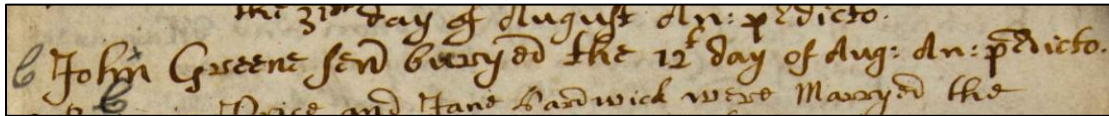 the 31th day of August An: pedicto.
b John Greene senr buryed the 12t day of Aug: An: pedicto.
b Price and Jane Bardwick were Marryed the